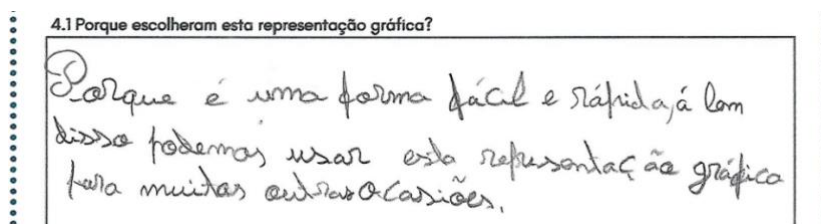 4.1 Porque escolheram esta representação gráfica?
Porque é uma forma fácil e rápida, á lem
disso podemos usar esta representação gráfica
para muitas outras ocasiões.